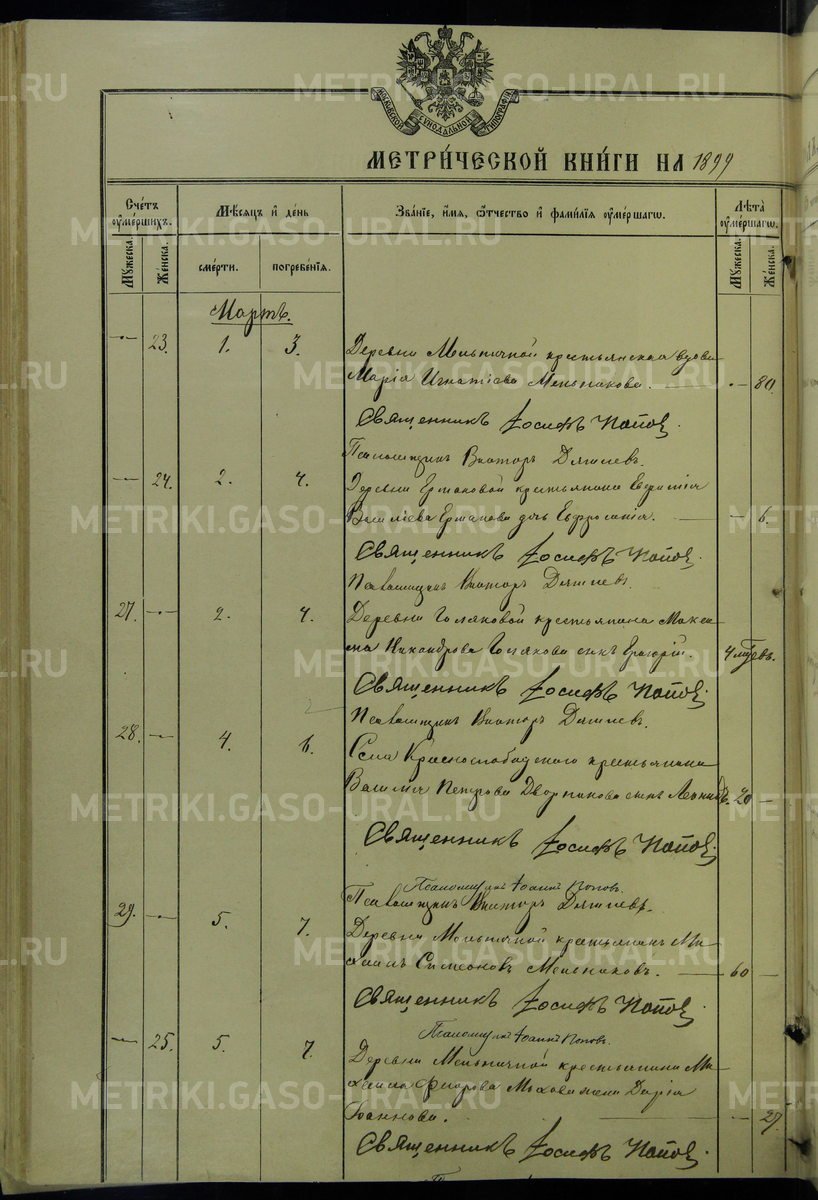 МОСКОВСКОЙ СѴНОДАЛЬНОЙ ТИПОГРАФІИ
METRIKI.GASO-URAL.RU
МЕТРИЧЕСКОЙ КНИГИ НА 1899
Счетъ умершихъ.
Мужеска.
Женска.
Мѣсяцъ и день
смерти.
погребенія.
Званіе, имя, отчество и фамилія умершаго.
Лѣта умершаго.
Мужеска.
Женска.
Мартъ.
23. 1. 3. Деревни Мельничной крестьянская вдова
Марія Игнатіева Мельникова. 80
Священникъ Іосифъ Поповъ.
Псаломщикъ Викторъ Дягилевъ.
24. 2. 4. Деревни Ермаковой крестьянина
Василіева Ермакова дочь Евфросинія. 6.
Священникъ Іосифъ Поповъ.
Псаломщикъ Викторъ Дягилевъ.
27. 2. 4. Деревни Голяковой крестьянина Макси-
ма Никандрова Голякова сынъ 4
Священникъ Іосифъ Поповъ.
Псаломщикъ Викторъ Дягилевъ.
28. 4. 6. Села Краснослободскаго крестьянина
Василія Петрова Дворникова сынъ Леонидъ. 20
Священникъ Іосифъ Поповъ.
Псаломщикъ Іоаннъ Поповъ.
Псаломщикъ Викторъ Дягилевъ.
29. 5. 7. Деревни Мельничной крестьянинъ Ми-
хаилъ Симеоновъ Мельниковъ. 60
Священникъ Іосифъ Поповъ.
Псаломщикъ Іоаннъ Поповъ.
25. 5. 7. Деревни Мельничной крестьянина Ми-
хаила Мохова жена Дарія
Іоаннова. 27
Священникъ Іосифъ Поповъ.